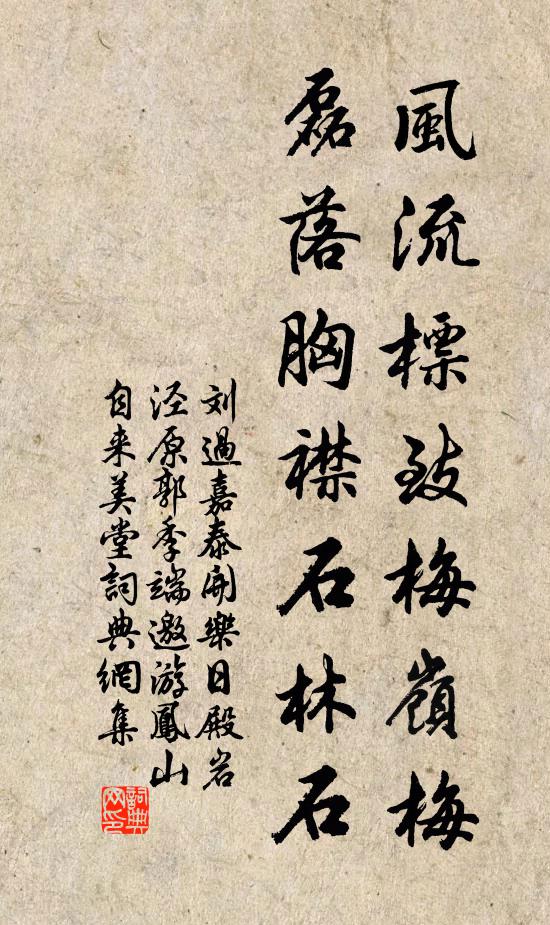 風流標致梅嶺梅
磊落胸襟石林石
刘過嘉泰開樂日殿岩
泾原郭季端邀游鳳山
自来美堂詞典網集
詞典网印